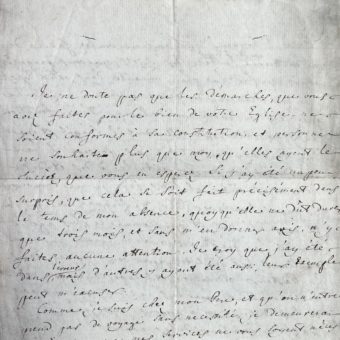 Je ne doute pas que les démarches, que vous
avez faites pour le bien de votre Eglise ne
soient conformes à sa constitution, et personne
ne souhaite plus que moy, qu'elles ayent le
succez, que vous en esperez. Si j'ay été un peu
surpris, que cela se soit fait précisément dans
le tems de mon absence, quoy qu'elle ne dût durer
que trois mois et sans m'en donner avis, n'y
faites, aucune attention. Je croy que j'ay été
dans, mais d'autres y ayant été aussi, leur exemple
peut m'excuser.
Comme je suis chez mon Pere, et qu'on n'entre
prend pas de voyage sans necessité, je demeurerai
services ne vous soient néces